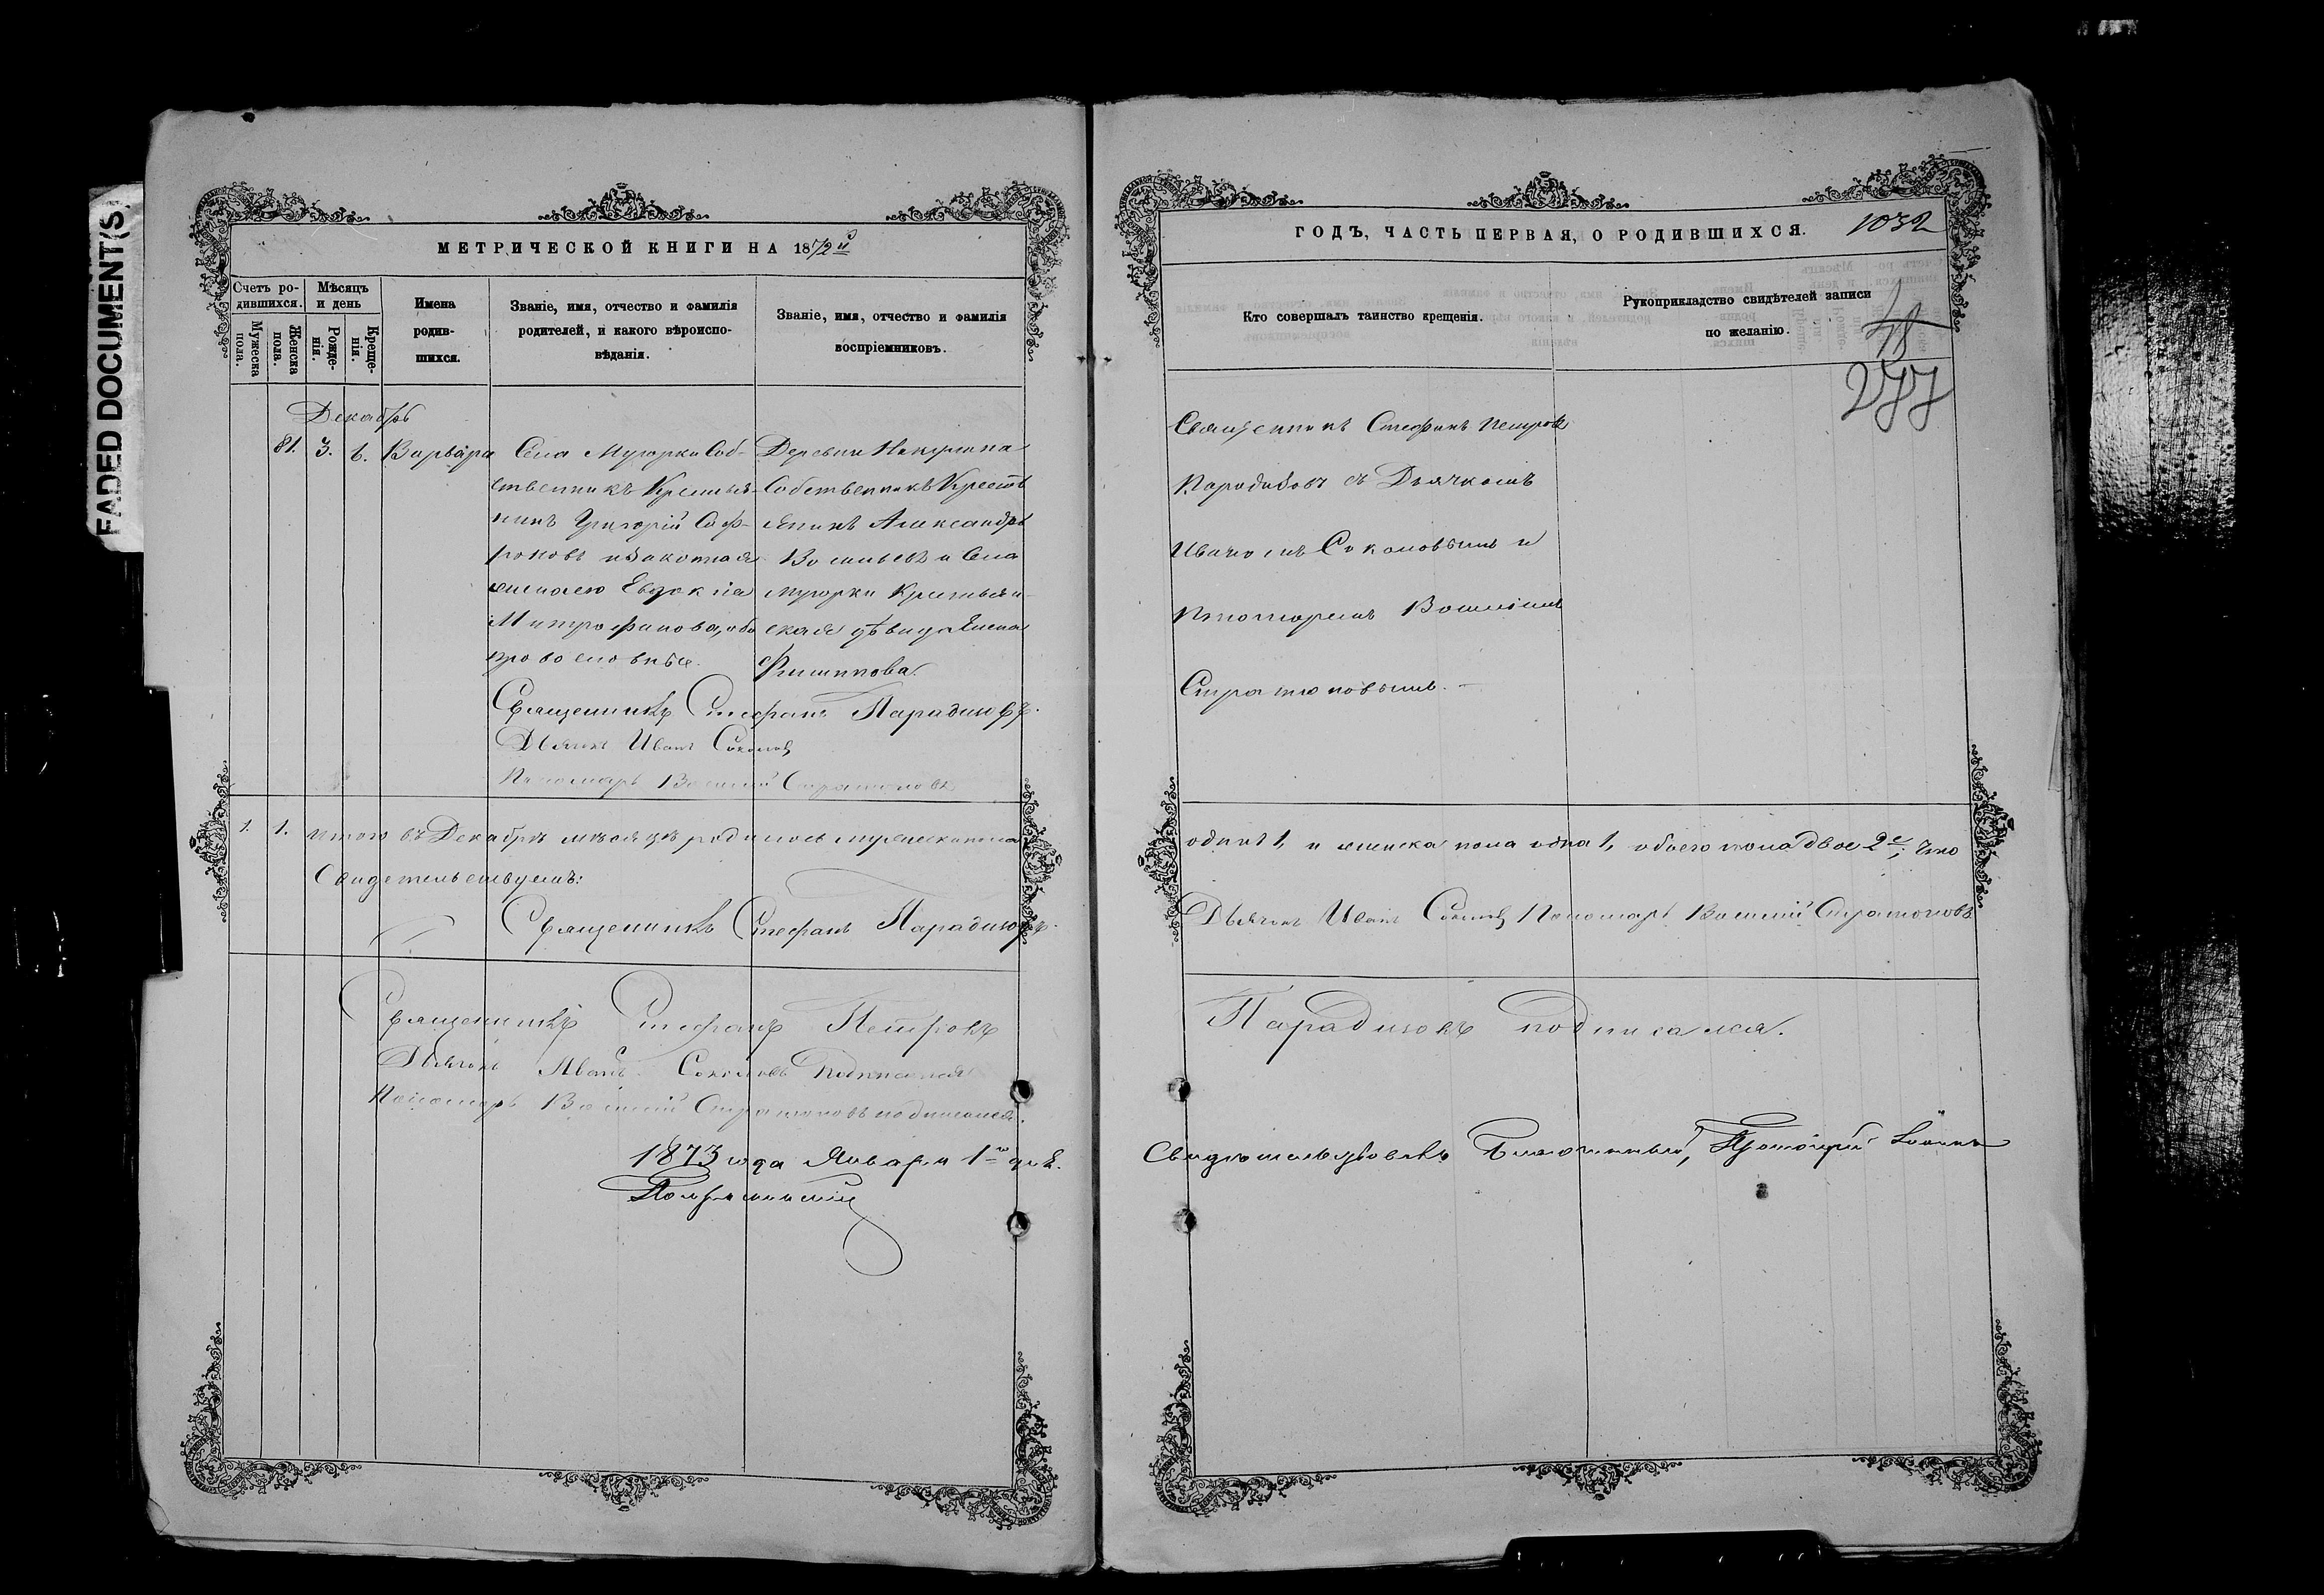 FADED DOCUMENT(S)
МЕТРИЧЕСКОЙ КНИГИ НА 1872й
Счетъ ро-
дившихся.
Мѣсяцъ
и день
Мужеска
пола.
Женска
пола.
Рожде-
нія.
Креще-
нія.
Имена
родив-
шихся.
Званіе, имя, отчество и фамилія
родителей, и какого вѣроиспо-
вѣданія.
Званіе, имя, отчество и фамилія
воспріемниковъ.
Декабрь
81. 3. 6. Варвара
Села Мугорки Соб-
ственникъ Крестья-
нинъ Григорій Соф-
роновъ и законная
жена его Евдокія
Митрофанова, оба
православные.
Деревни
Собственникъ Крест
янинъ Александръ
и Села
Мугорки Крестьян-
ская дѣвица Елена
Филиппова.
Священникъ Стефанъ Парадизовъ.
Дьячекъ Иванъ Соколовъ
Пономарь Василій Стратоновъ
1. 1. итого въ Декабрѣ мѣсяцѣ родилось мужеска пола
Свидетельствуемъ:
Священникъ Стефанъ Парадизовъ.
Священникъ Стефанъ Петровъ
Дьячекъ Иванъ Соколовъ подписался
Пономарь Василій Стратоновъ подписался.
1873 года Января 1го дня.
ГОДЪ, ЧАСТЬ ПЕРВАЯ, О РОДИВШИХСЯ.
1032
Кто совершалъ таинство крещенія.
Рукоприкладство свидѣтелей записи
по желанію.
48
277
Священникъ Стефанъ Петровъ
Парадизовъ съ Дьячкомъ
Иваномъ Соколовымъ и
Пономаремъ Василіемъ
Стратоновымъ.
одинъ 1, и женска пола одна 1, обоего пола двое 2е, что
Дьячекъ Иванъ Соколовъ Пономарь Василій Стратоновъ
Парадизовъ подписался.
Свидѣтельствовалъ Благочинный, Протоіерей Іоаннъ